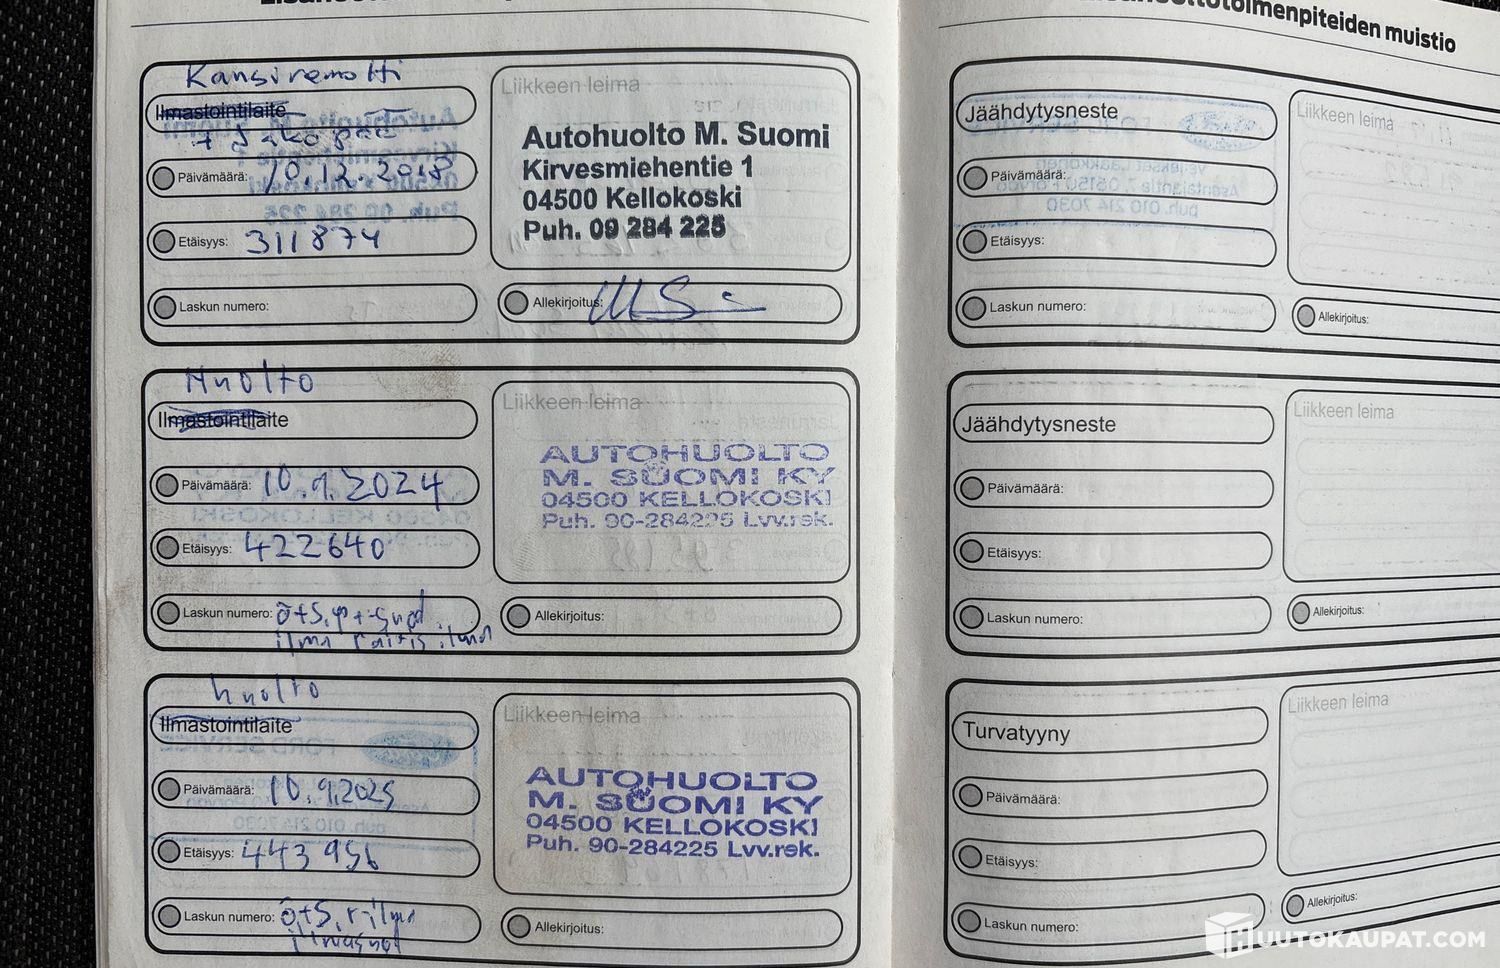 Lisähuoltotoimenpiteiden muistio
Kansiremontti
Ilmastointilaite
+ Jakopää
Päivämäärä: 10.12.2018
Etäisyys: 311874
Laskun numero:
Liikkeen leima
Autohuolto M. Suomi
Kirvesmiehentie 1
04500 Kellokoski
Puh. 09 284 225
Allekirjoitus:
Huolto
Ilmastointilaite
Päivämäärä: 10.9.2024
Etäisyys: 422640
Laskun numero: ö+S,
ilma raitis ilma
Liikkeen leima
AUTOHUOLTO
M. SUOMI KY
04500 KELLOKOSKI
Puh. 90-284225 Lvv.rek.
Allekirjoitus:
huolto
Ilmastointilaite
Päivämäärä: 10.9.2025
Etäisyys: 443956
Laskun numero: ö+S,
Liikkeen leima
AUTOHUOLTO
M. SUOMI KY
04500 KELLOKOSKI
Puh. 90-284225 Lvv.rek.
Allekirjoitus:
Jäähdytysneste
Päivämäärä:
Etäisyys:
Laskun numero:
Liikkeen leima
Allekirjoitus:
Jäähdytysneste
Päivämäärä:
Etäisyys:
Laskun numero:
Liikkeen leima
Allekirjoitus:
Turvatyyny
Päivämäärä:
Etäisyys:
Laskun numero:
Liikkeen leima
Allekirjoitus:
HUUTOKAUPAT.COM